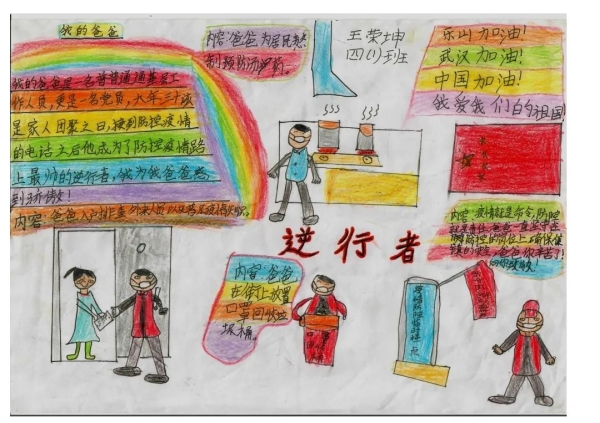 我的爸爸
我的爸爸是一名普普通通基层工
作人员,更是一名党员,大年三十本
是家人团聚之日,接到防控疫情
的电话之后他成为了防控疫情路
上最帅的逆行者,我为我爸爸感
到骄傲!
内容:爸爸入户排查外来人员
内容:爸爸为居民熬
制预防汤药。
王荣坤
四(1)班
乐山加油!
武汉加油!
中国加油!
我爱我们的祖国!
逆行者
内容:疫情就是命令,防控
就是责任,爸爸一直坚守在
内容:爸爸
在街上放置
口罩回收垃
圾桶。